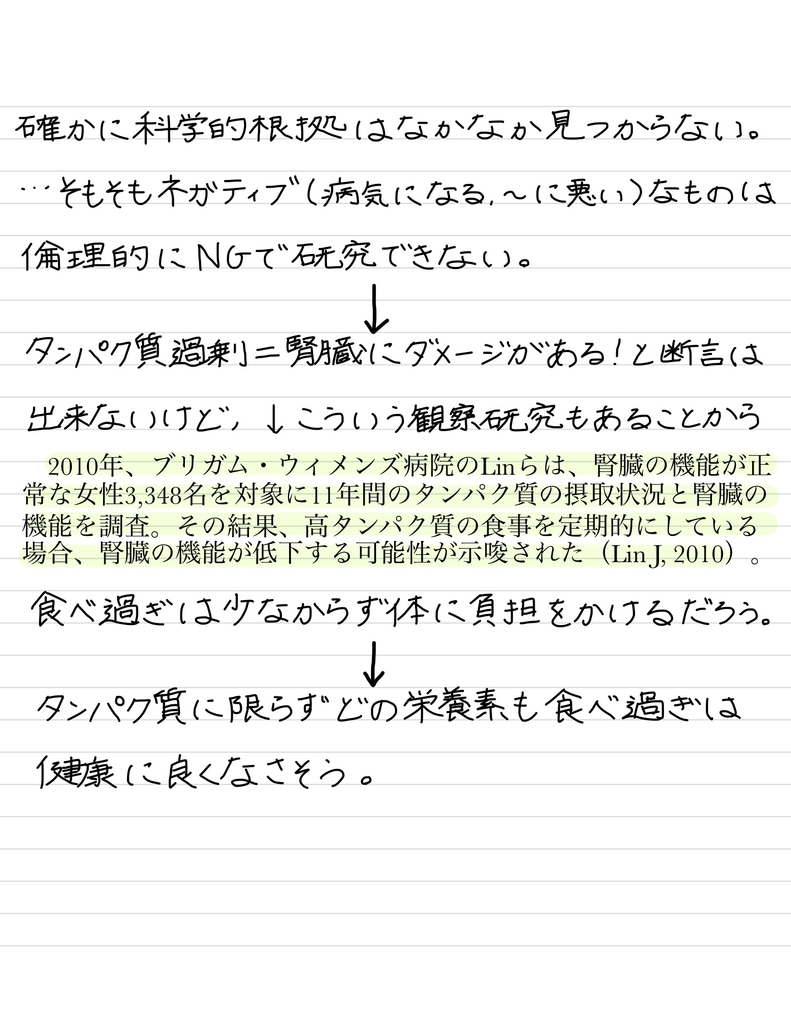 確かに科学的根拠はなかなか見つからない。
…そもそもネガティブ(病気になる、〜に悪い)なものは
倫理的にNGで研究できない。
↓
タンパク質過剰=腎臓にダメージがある!と断言は
出来ないけど、↓こういう観察研究もあることから
2010年、ブリガム・ウィメンズ病院のLinらは、腎臓の機能が正
常な女性3,348名を対象に11年間のタンパク質の摂取状況と腎臓の
機能を調査。その結果、高タンパク質の食事を定期的にしている
場合、腎臓の機能が低下する可能性が示唆された（Lin J, 2010）。
食べ過ぎは少なからず体に負担をかけるだろう。
↓
タンパク質に限らずどの栄養素も食べ過ぎは
健康に良くなさそう。